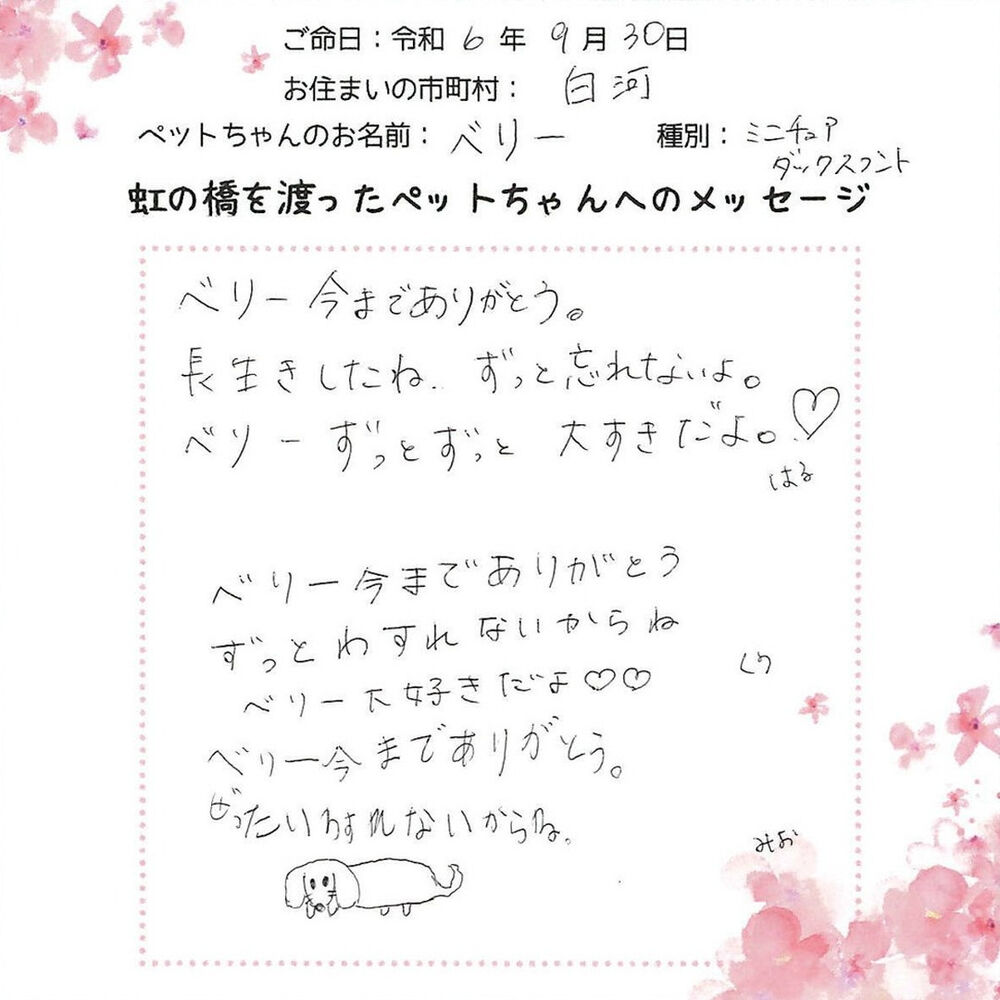 ご命日：令和 6 年 9 月 30日
お住まいの市町村： 白河
ペットちゃんのお名前： ベリー 種別： ミニチュア
ダックスフント
虹の橋を渡ったペットちゃんへのメッセージ
ベリー 今までありがとう。
長生きしたね. ずっと忘れないよ。
ベリー ずっとずっと 大すきだよ。♡
はる
ベリー今までありがとう
ずっとわすれないからね
くり
ベリー大好きだよ♡♡
ベリー今までありがとう。
ぜったいわすれないからね。
みお